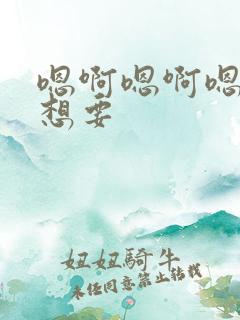 嗯啊嗯啊嗯
想要
妞妞騎牛
未经同意禁止转载